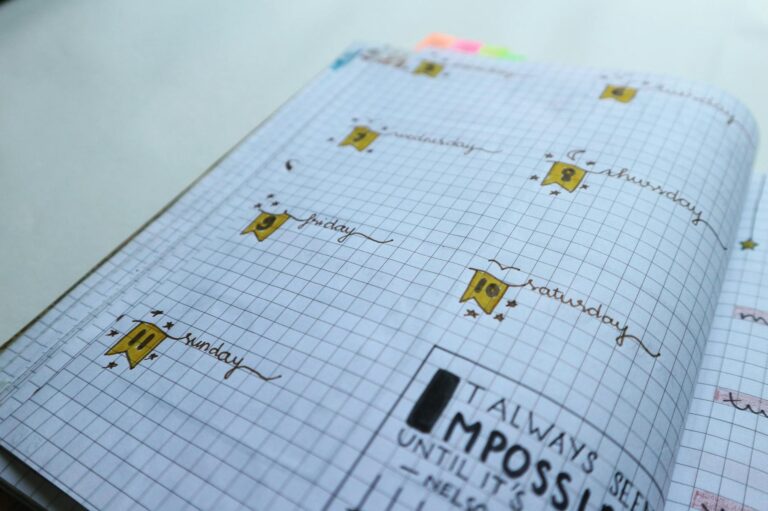 5
6 tuesday
7 wednesday
8 thursday
9 friday
10 saturday
11 sunday
IT ALWAYS SEE
MPOSSI
UNTIL IT'S
—NELSO